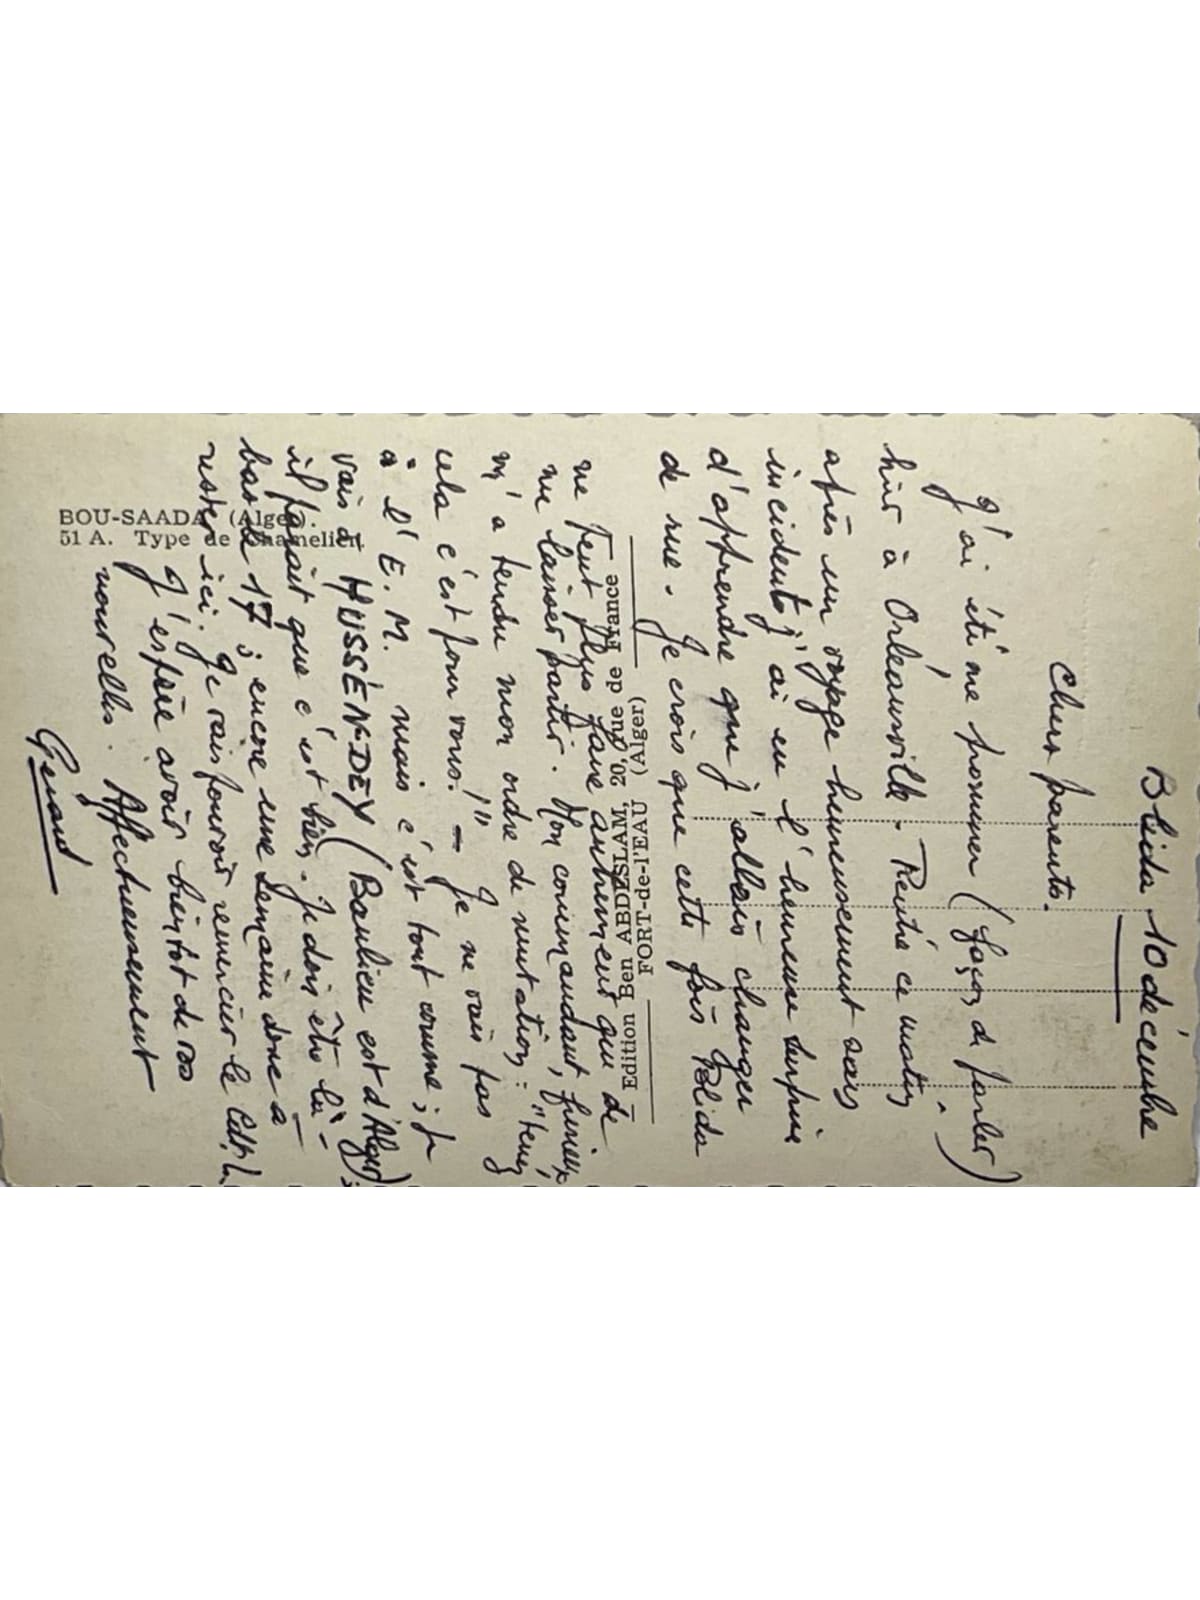 Blida 10 décembre
Chers parents.
J'ai été me promener (façon de parler)
hier à Orléansville. Rentré ce matin
après un voyage heureusement sans
incident, j'ai eu l'heureuse surprise
d'apprendre que j'allais changer
de rue. Je crois que cette fois Blida
ne peut plus faire autrement que de
me laisser partir. Mon commandant, furieux
m'a tendu mon ordre de mutation : "tenez
cela c'est pour vous !" — Je ne vais pas
à l'E.M. mais c'est tout comme ; je
vais à HUSSEN-DEY (Banlieu est d'Alger) ;
il parait que c'est bien. Je dois être là-
bas le 17 ; encore une semaine donc à
rester ici. Je vais pouvoir remercier le Cdt
J'espère avoir bientôt de vos
nouvelles. Affectueusement
Gérard
BOU-SAADA (Alger).
51 A. Type de Chamelier.
Edition Ben ABDESLAM, 20, rue de France
FORT-de-l'EAU (Alger)